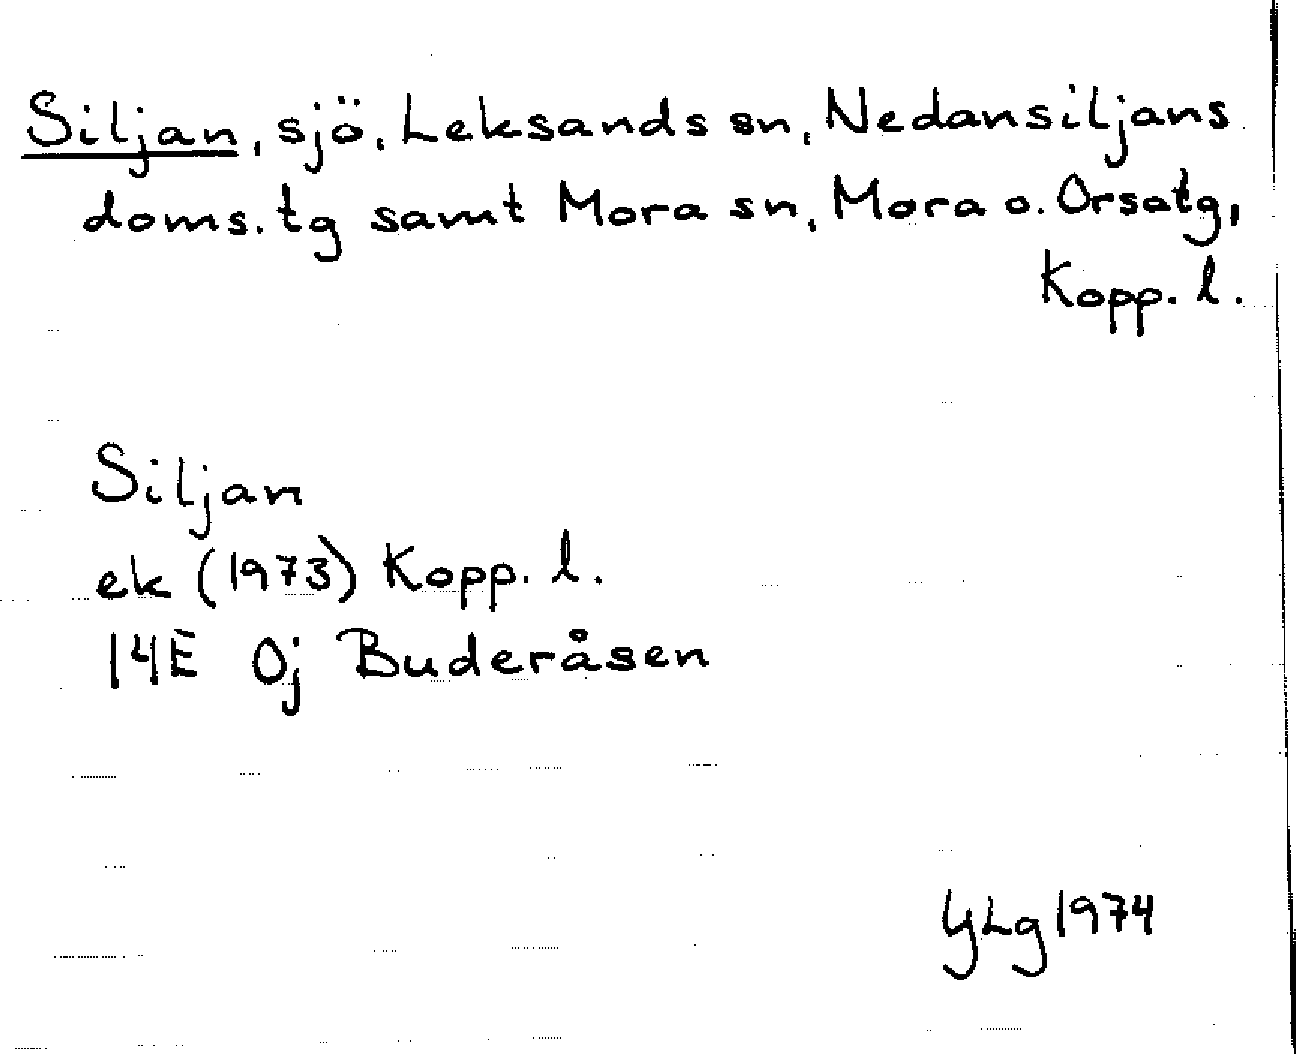 Siljan, sjö, Leksands sn, Nedansiljans
doms.tg samt Mora sn, Mora o. Orsatg,
Kopp. l.
Siljan
ek (1973) Kopp. l.
14E 0j Buderåsen
YLg 1974